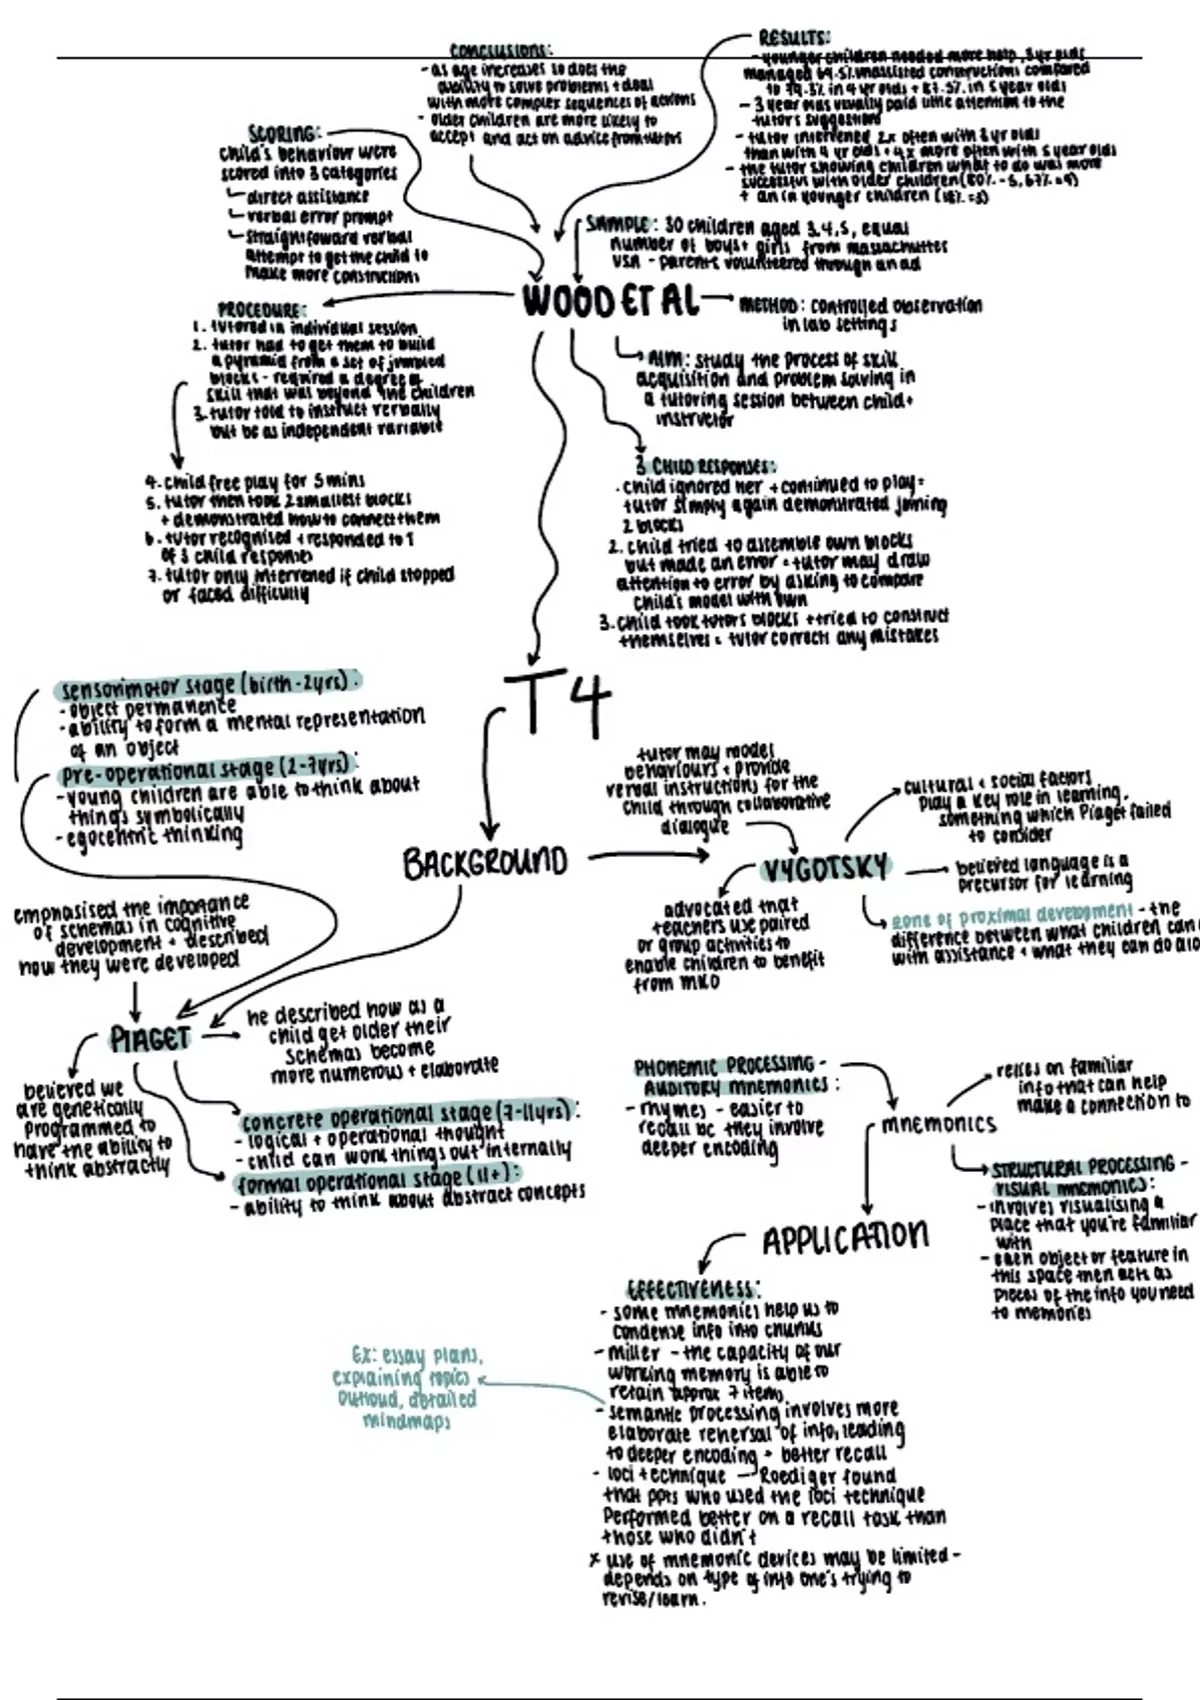 CONCLUSIONS:
- as age increases so does the
ability to solve problems + deal
with more complex sequences of actions
- older children are more likely to
accept and act on advice from tutors
RESULTS:
- younger children needed more help, 3 yr olds
managed 64.5% unassisted constructions compared
to 79.3% in 4 yr olds + 87.5% in 5 year olds
- 3 year olds usually paid little attention to the
tutor's suggestions
- tutor intervened 2x often with 3 yr olds
than with 4 yr olds + 4x more often with 5 year olds
- the tutor showing children what to do was more
successful with older children (80% - 5, 67% = 4)
+ an in younger children (18% = 3)
SCORING:
child's behaviour were
scored into 3 categories
direct assistance
verbal error prompt
straightfoward verbal
attempt to get the child to
make more constructions
SAMPLE: 30 children aged 3,4,5, equal
number of boys + girls from massachuttes
USA - parents volunteered through an ad
WOOD ET AL
METHOD: controlled observation
in lab settings
AIM: study the process of skill
acquisition and problem solving in
a tutoring session between child +
instructor
PROCEDURE:
1. tutored in individual session
2. tutor had to get them to build
a pyramid from a set of jumbled
blocks - required a degree of
skill that was beyond the children
3. tutor told to instruct verbally
but be as independent variable
4. child free play for 5 mins
5. tutor then took 2 smallest blocks
+ demonstrated how to connect them
6. tutor recognised + responded to 1
of 3 child responses
7. tutor only intervened if child stopped
or faced difficulty
3 CHILD RESPONSES:
. child ignored her + continued to play =
tutor simply again demonstrated joining
2 blocks
2. child tried to assemble own blocks
but made an error = tutor may draw
attention to error by asking to compare
child's model with own
3. child took tutors blocks + tried to construct
themselves = tutor corrects any mistakes
T4
sensorimotor stage (birth - 2yrs):
- object permanence
- ability to form a mental representation
of an object
pre-operational stage (2-7yrs):
- young children are able to think about
things symbolically
- egocentric thinking
BACKGROUND
tutor may model
behaviours + provide
verbal instructions for the
child through collaborative
dialogue
VYGOTSKY
cultural + social factors
play a key role in learning,
something which Piaget failed
to consider
believed language is a
precursor for learning
zone of proximal development - the
difference between what children can
with assistance + what they can do alo
advocated that
teachers use paired
or group activities to
enable children to benefit
from MKO
emphasised the importance
of schemas in cognitive
development + described
how they were developed
PIAGET
he described how as a
child get older their
schemas become
more numerous + elaborate
believed we
are genetically
programmed to
have the ability to
think abstractly
concrete operational stage (7-11yrs):
- logical + operational thought
- child can work things out internally
formal operational stage (11+):
- ability to think about abstract concepts
PHONEMIC PROCESSING -
AUDITORY MNEMONICS:
- rhymes - easier to
recall bc they involve
deeper encoding
MNEMONICS
relies on familiar
info that can help
make a connection to
STRUCTURAL PROCESSING -
VISUAL MNEMONICS:
- involves visualising a
place that you're familiar
with
- each object or feature in
this space then acts as
pieces of the info you need
to memories
APPLICATION
EFFECTIVENESS:
- some mnemonics help us to
condense info into chunks
- miller - the capacity of our
working memory is able to
retain approx 7 items
- semantic processing involves more
elaborate rehersal of info, leading
to deeper encoding + better recall
- loci technique → Roediger found
that ppts who used the loci technique
performed better on a recall task than
those who didn't
x use of mnemonic devices may be limited -
depends on type of info one's trying to
revise/learn.
Ex: essay plans,
explaining topics
outloud, detailed
mindmaps